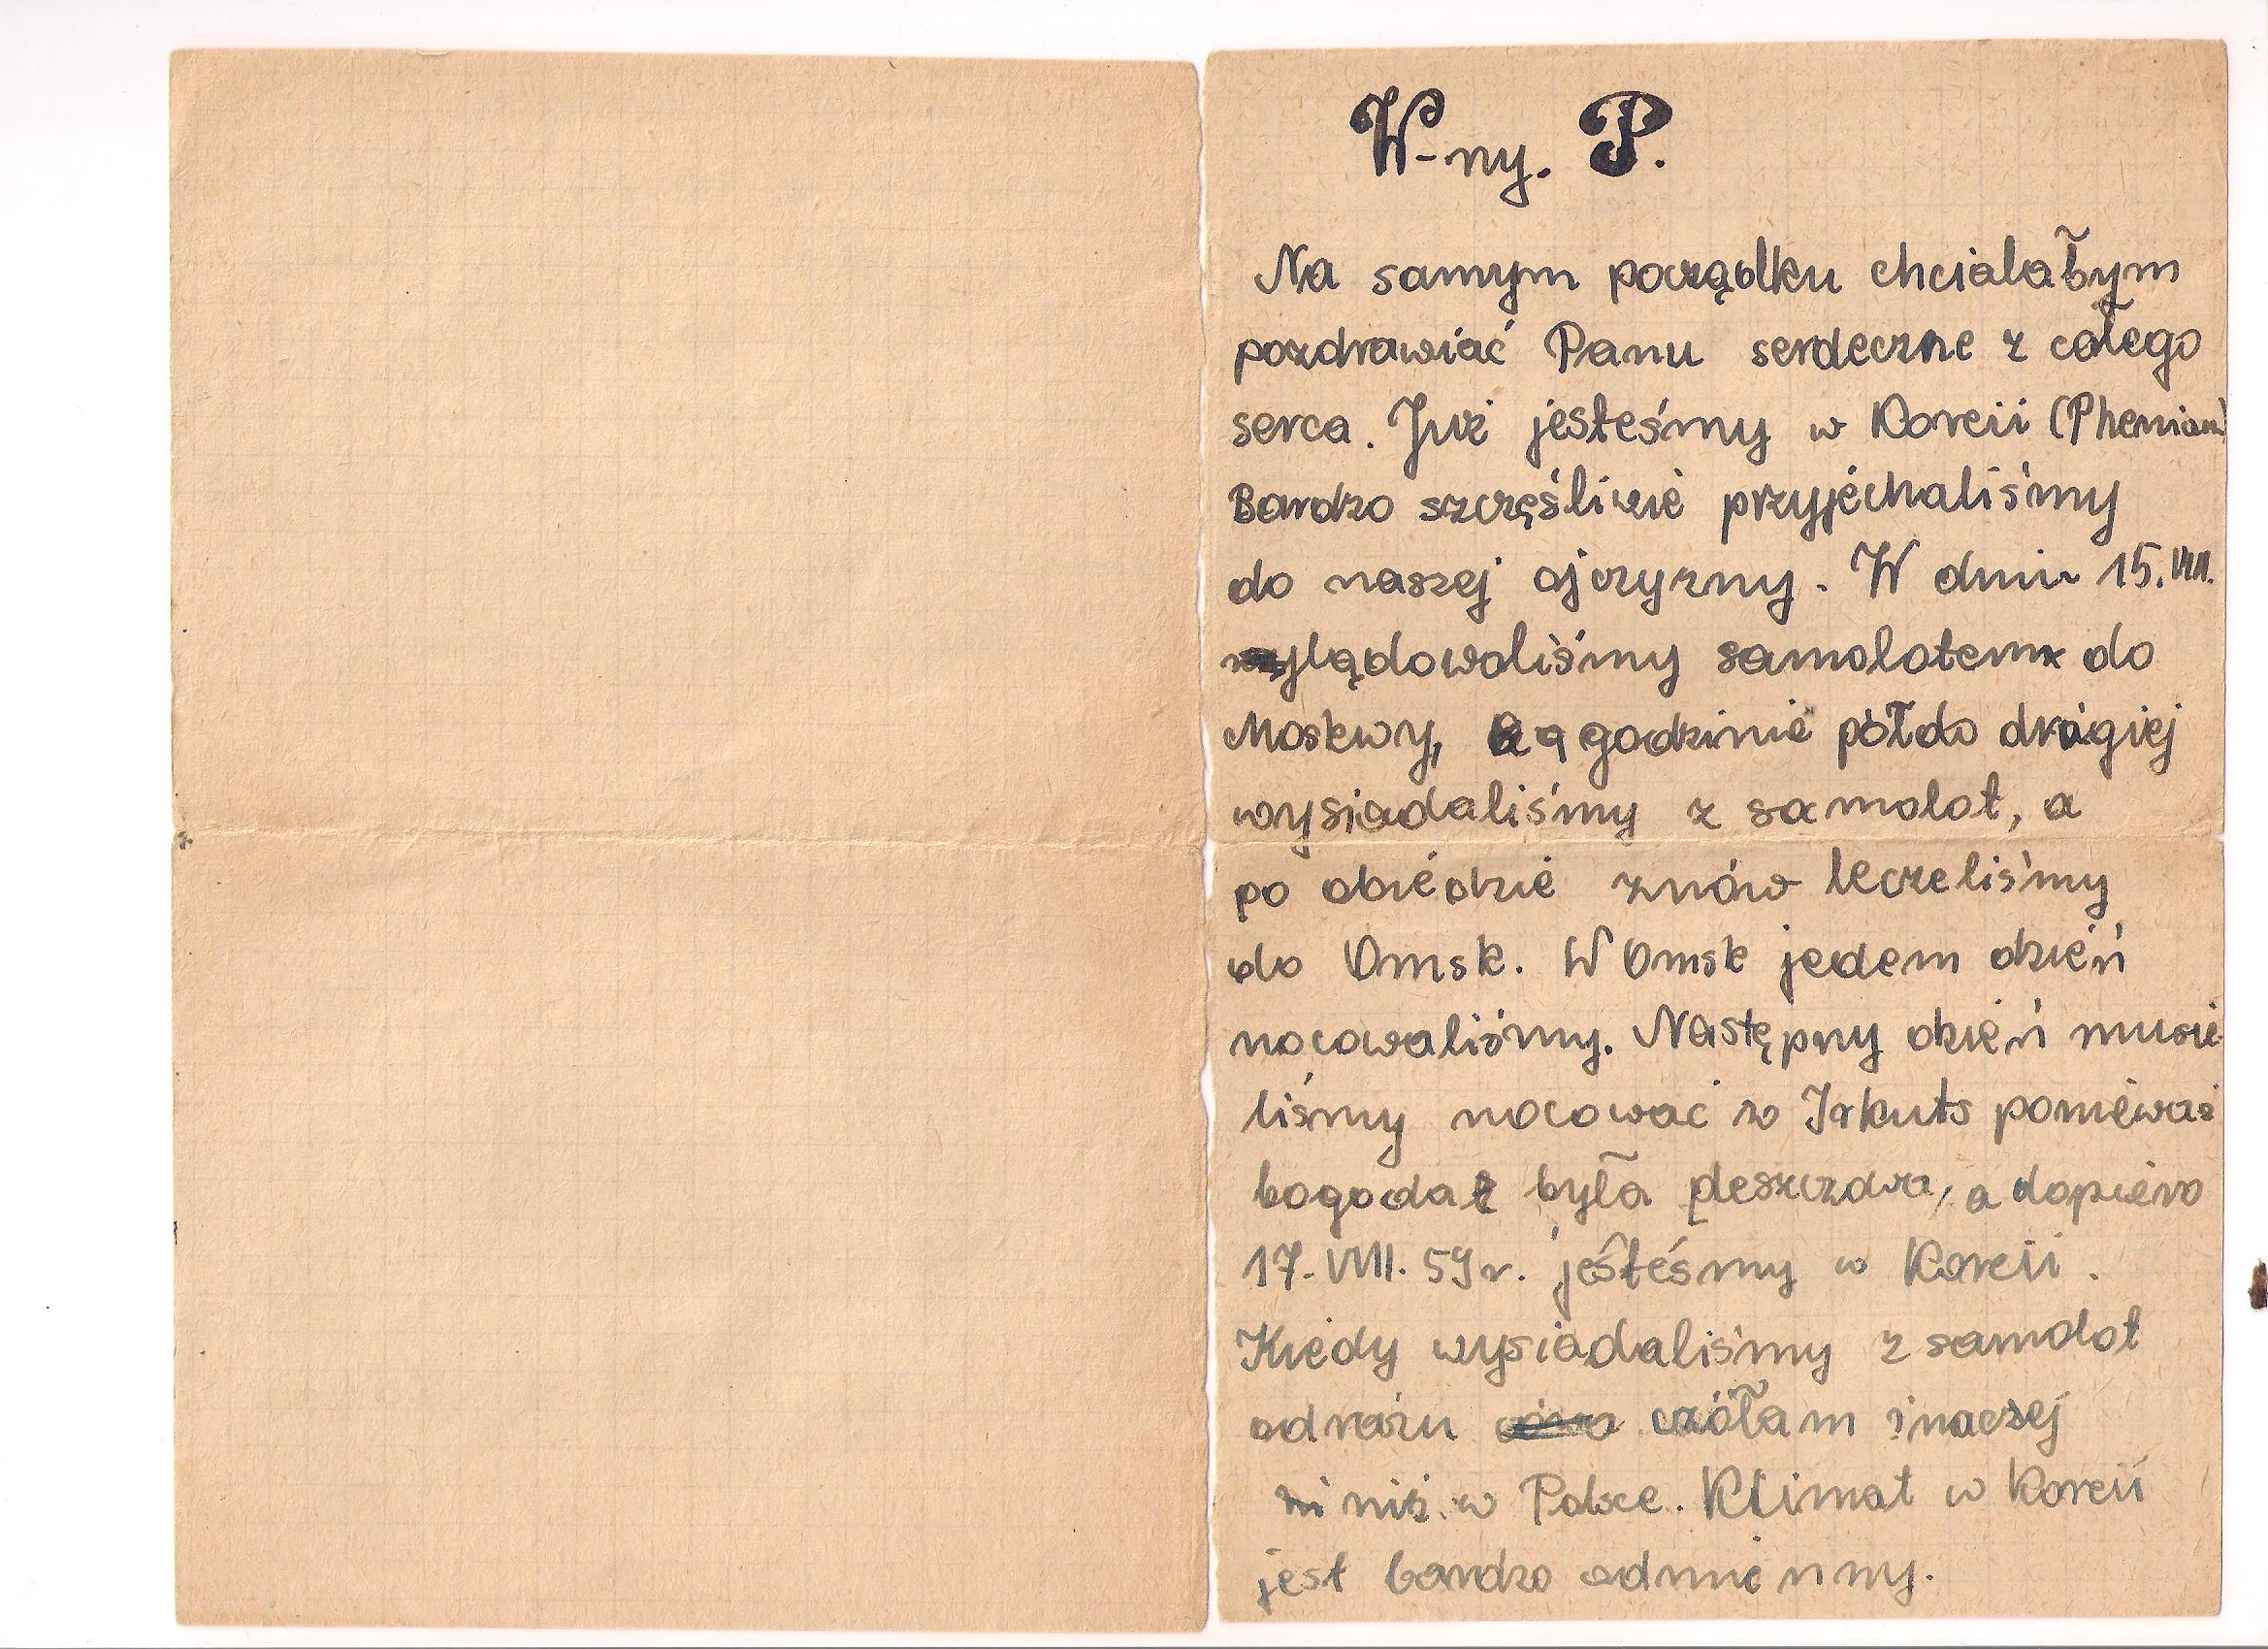 W-ny. P.
Na samym porządku chciałabym
pozdrawiać Panu serdeczne z całego
serca. Już jesteśmy w Koreii (Phenian)
Bardzo szczęśliwie przyjechaliśmy
do naszej ojczyzny. W dniu 15.VIII.
wylądowaliśmy samolotem do
Moskwy, a godzinie półdo drugiej
wysiadaliśmy z samolot, a
po obiedzie znów leczeliśmy
do Omsk. W Omsk jedem dzień
nocowaliśmy. Następny dzień musie
liśmy nocować w Irkuts ponieważ
bogoda była deszczowa, a dopiero
17. VIII. 59 r. jesteśmy w Koreii.
Kiedy wysiadaliśmy z samolot
odrazu czółam inaczej
ni niż w Polsce. Klimat w Koreii
jest bardzo odmienny.